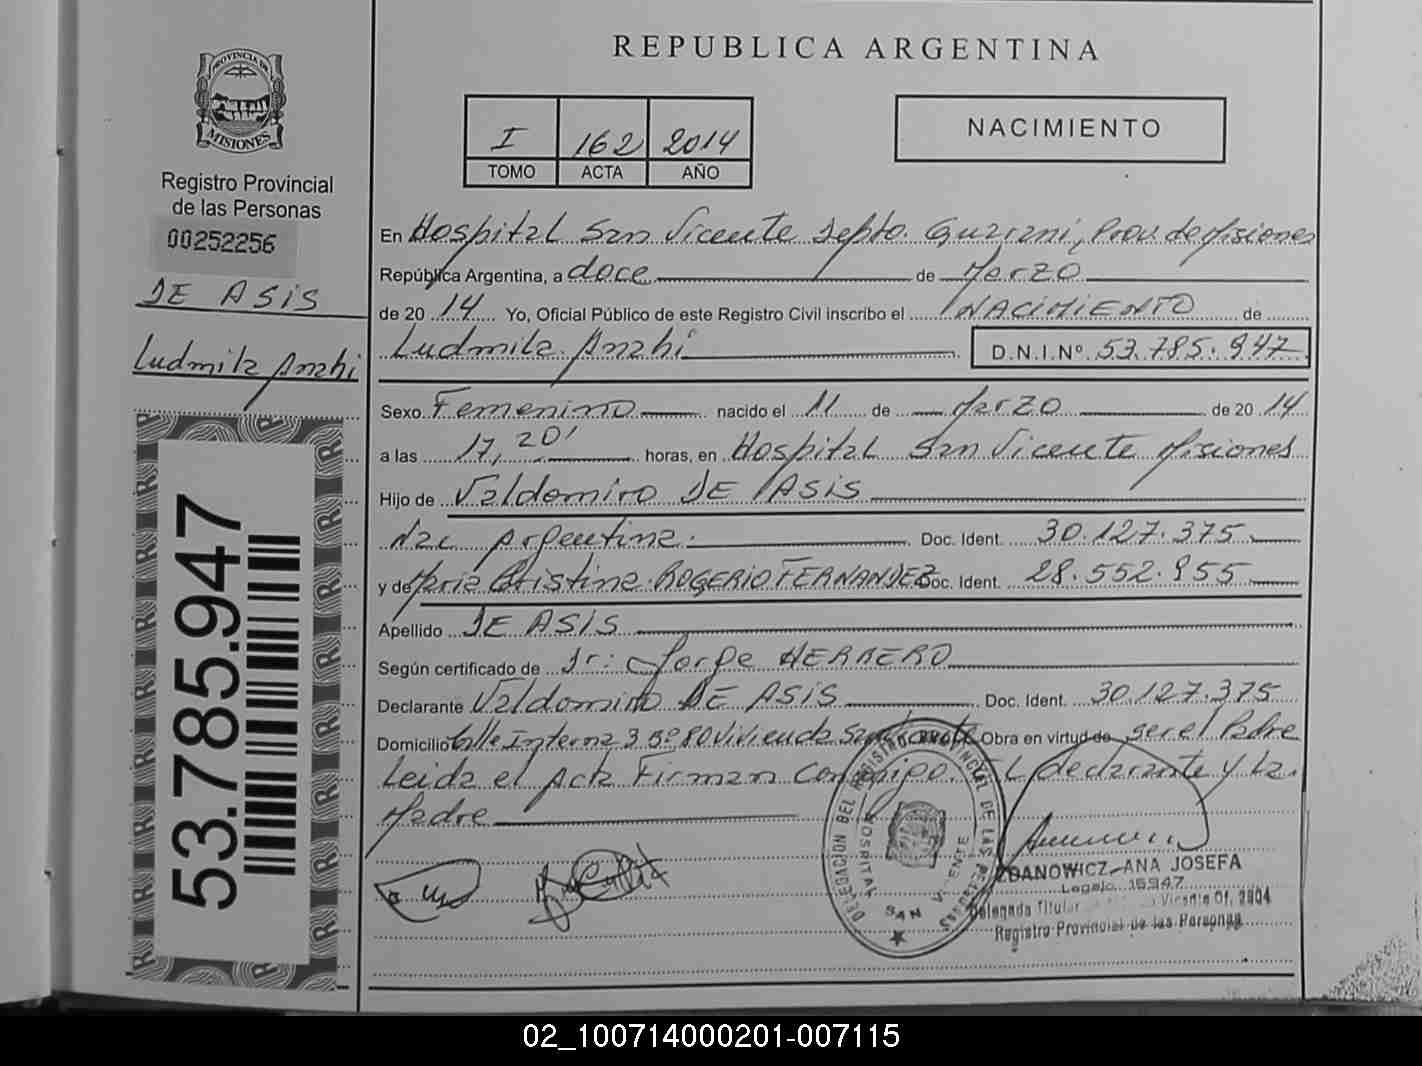 REPUBLICA ARGENTINA
PROVINCIA DE
MISIONES
Registro Provincial
de las Personas
00252256
DE ASIS
Ludmila Anahi
53.785.947
I 162 2014
TOMO ACTA AÑO
NACIMIENTO
En Hospital San Vicente Depto. Guarani, Prov. de Misiones
República Argentina, a doce de Marzo
de 20 14 Yo, Oficial Público de este Registro Civil inscribo el NACIMIENTO de
Ludmila Anahi D.N.I.Nº 53.785.947
Sexo Femenino nacido el 11 de Marzo de 20 14
a las 17,20' horas, en Hospital San Vicente Misiones
Hijo de Valdomiro DE ASIS
Nac Argentina. Doc. Ident. 30.127.375
y de Maria Cristina ROGERIO FERNANDEZ Doc. Ident. 28.552.955
Apellido DE ASIS
Según certificado de Dr: Jorge HERRERO
Declarante Valdomiro DE ASIS Doc. Ident. 30.127.375
Domicilio Calle Interna 3 Bº 80 Vivienda San Vicente Obra en virtud de ser el Padre
Leida el Acta Firman Conmigo EL declarante y La
Madre
DELEGACION DEL REGISTRO PROVINCIAL DE LAS PERSONAS
HOSPITAL SAN VICENTE
ZDANOWICZ ANA JOSEFA
Legajo 15947
Delegada Titular Vicente Of. 2804
Registro Provincial de las Personas
02_100714000201-007115